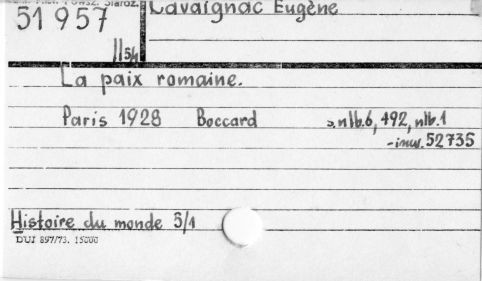 Cavaignac Eugène
51 957
II 54
La paix romaine.
Paris 1928 Boccard s. nlb. 6, 492, nlb. 1
-inw. 52735
Histoire du monde 5/1
DUJ 897/73. 15000